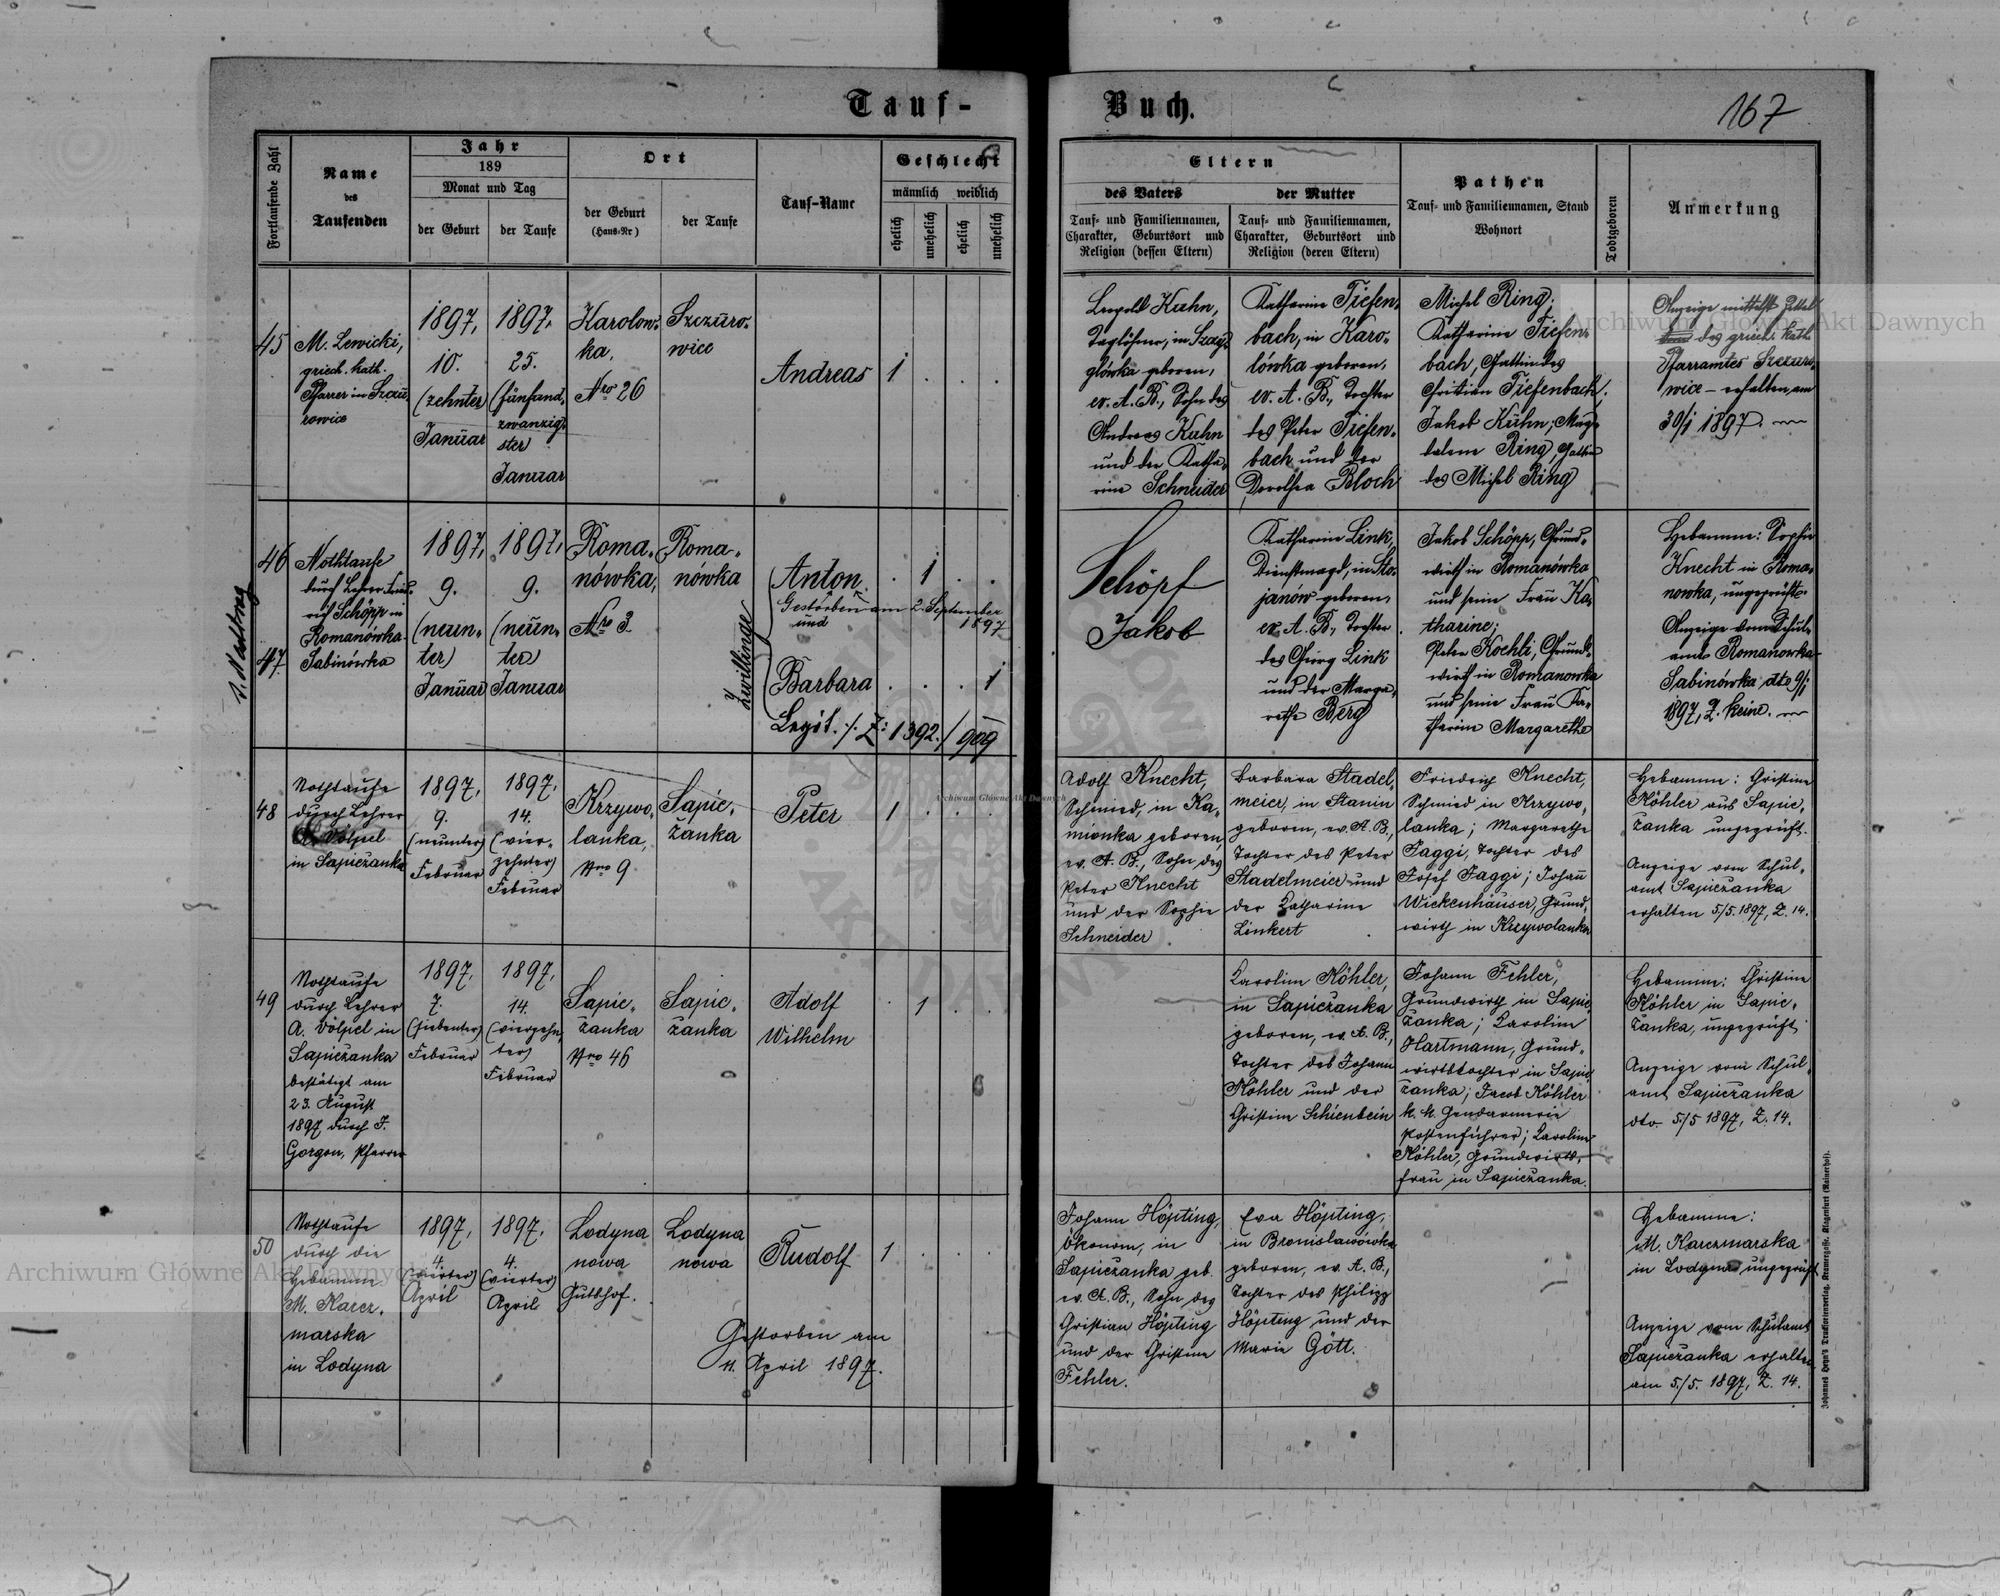 Tauf-
Buch.
167
Fortlaufende Zahl
Name
des
Taufenden
Jahr
189
Monat und Tag
der Geburt
der Taufe
Ort
der Geburt
(Haus-Nr)
der Taufe
Tauf-Name
Geschlecht
männlich
weiblich
ehelich
unehelich
ehelich
unehelich
Eltern
des Vaters
Tauf- und Familiennamen,
Charakter, Geburtsort und
Religion (dessen Eltern)
der Mutter
Tauf- und Familiennamen,
Charakter, Geburtsort und
Religion (deren Eltern)
Pathen
Tauf- und Familiennamen, Stand
Wohnort
Todtgeboren
Anmerkung
45
M. Lewicki,
griech. kath.
Pfarrer in Szczu-
rowice
1897,
10.
(zehnter)
Januar
1897,
25.
(fünfund-
zwanzig-
ster)
Januar
Karolow-
ka,
Nro 26
Szczuro-
wice
Andreas
1
Leopold Kuhn,
Taglöhner, in
geboren,
ev. A. B., Sohn des
Andreas Kuhn
und der Katha-
rine Schneider
Katharine Tiefen-
bach, in Karo-
lówka geboren,
ev. A. B., Tochter
des Peter Tiefen-
bach und der
Dorothea Bloch
Michel Ring;
Katharine Tiefen-
bach, Gattin des
Christian Tiefenbach;
Jakob Kuhn; Mag-
dalene Ring, Gattin
des Michel Ring
Anzeige mittelst Zettel
des griech. kath.
Pfarramtes Szczuro-
wice – erhalten am
30/1 1897.
46
47.
Nothtaufe
durch Lehrer Fried-
rich Schöpp in
Romanówka-
Sabinówka
1897,
9.
(neun-
ter)
Januar
1897,
9.
(neun-
ter)
Januar
Roma-
nówka,
Nro 3
Roma-
nówka
Zwillinge
Anton
Gestorben am 2. September
1897
und
Barbara
Legit. /. Z: 1392./909
1
1
Schöpf
Jakob
Katharine Link,
Dienstmagd, in Sto-
janów geboren,
ev. A. B., Tochter
des Georg Link
und der Marga-
rethe Berg
Jakob Schöpp, Grund-
wirth in Romanówka
und seine Frau Ka-
tharine;
Peter Koehli, Grund-
wirth in Romanowka
und seine Frau Ka-
tharine Margarethe
Hebamme: Sophie
Knecht in Roma-
nowka, ungeprüft.
Anzeige vom Schul-
amt Romanowka-
Sabinówka dto 9/1
1897, Z. keine.
48
Nothtaufe
durch Lehrer
A. Völpel
in Sapieżanka
1897,
9.
(neunter)
Februar
1897,
14.
(vier-
zehnter)
Februar
Krzywo-
lanka,
Nro 9
Sapie-
żanka
Peter
1
Adolf Knecht,
Schmied, in Ka-
mionka geboren,
ev. A. B., Sohn des
Peter Knecht
und der Sophie
Schneider
Barbara Stadel-
meier, in Stanin
geboren, ev. A. B.,
Tochter des Peter
Stadelmeier und
der Katharine
Linkert
Friedrich Knecht,
Schmied in Krzywo-
lanka; Margarethe
Jaggi, Tochter des
Josef Jaggi; Johann
Wickenhäuser, Grund-
wirth in Krzywolanka
Hebamme: Christine
Köhler aus Sapie-
żanka ungeprüft.
Anzeige vom Schul-
amt Sapieżanka
erhalten 5/5. 1897, Z. 14.
49
Nothtaufe
durch Lehrer
A. Völpel in
Sapieżanka
bestätigt am
23. August
1897 durch J.
Gorgon, Pfarrer
1897.
7.
(siebenter)
Februar
1897,
14.
(vierzehn-
ter)
Februar
Sapie-
żanka
Nro 46
Sapie-
żanka
Adolf
Wilhelm
1
Karoline Köhler,
in Sapieżanka
geboren, ev. A. B.,
Tochter des Johann
Köhler und der
Christine Schienbein
Johann Fehler,
Grundwirth in Sapie-
żanka; Karoline
Hartmann, Grund-
wirthstochter in Sapie-
żanka; Jacob Köhler
k. k. Gendarmerie
Postenführer; Karoline
Köhler, Grundwirths-
frau in Sapieżanka.
Hebamme: Christine
Köhler in Sapie-
żanka, ungeprüft.
Anzeige vom Schul-
amt Sapieżanka
dto. 5/5 1897, Z. 14.
50
Nothtaufe
durch die
Hebamme
M. Karcz-
marska
in Lodyna
1897,
4.
(vierter)
April
1897,
4.
(vierter)
April
Lodyna
nowa
Gutshof.
Lodyna
nowa
Rudolf
1
Gestorben am
11. April 1897.
Johann Höpting,
Ökonom, in
Sapieżanka geb.
ev. A. B., Sohn des
Christian Höpting
und der Christine
Fehler.
Eva Höpting,
in Bronislawówka
geboren, ev. A. B.,
Tochter des Philipp
Höpting und der
Marie Gött.
Hebamme:
M. Karczmarska
in Lodyna ungeprüft
Anzeige vom Schulamt
Sapieżanka erhalten
am 5./5. 1897, Z. 14.
Johannes Heyn's Drucksortenverlag, Kramergasse, Klagenfurt (Rainerhof).
Archiwum Główne Akt Dawnych
Archiwum Główne Akt Dawnych
Archiwum Główne Akt Dawnych